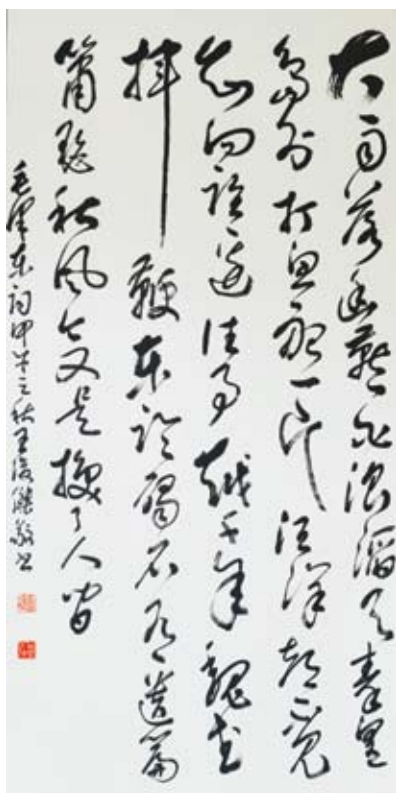 大雨落幽燕白浪滔天秦皇
岛外打鱼船一片汪洋都不见
知向谁边往事越千年魏武
挥鞭东临碣石有遗篇
箫瑟秋风今又是换了人间
毛泽东词甲午之秋王敬书